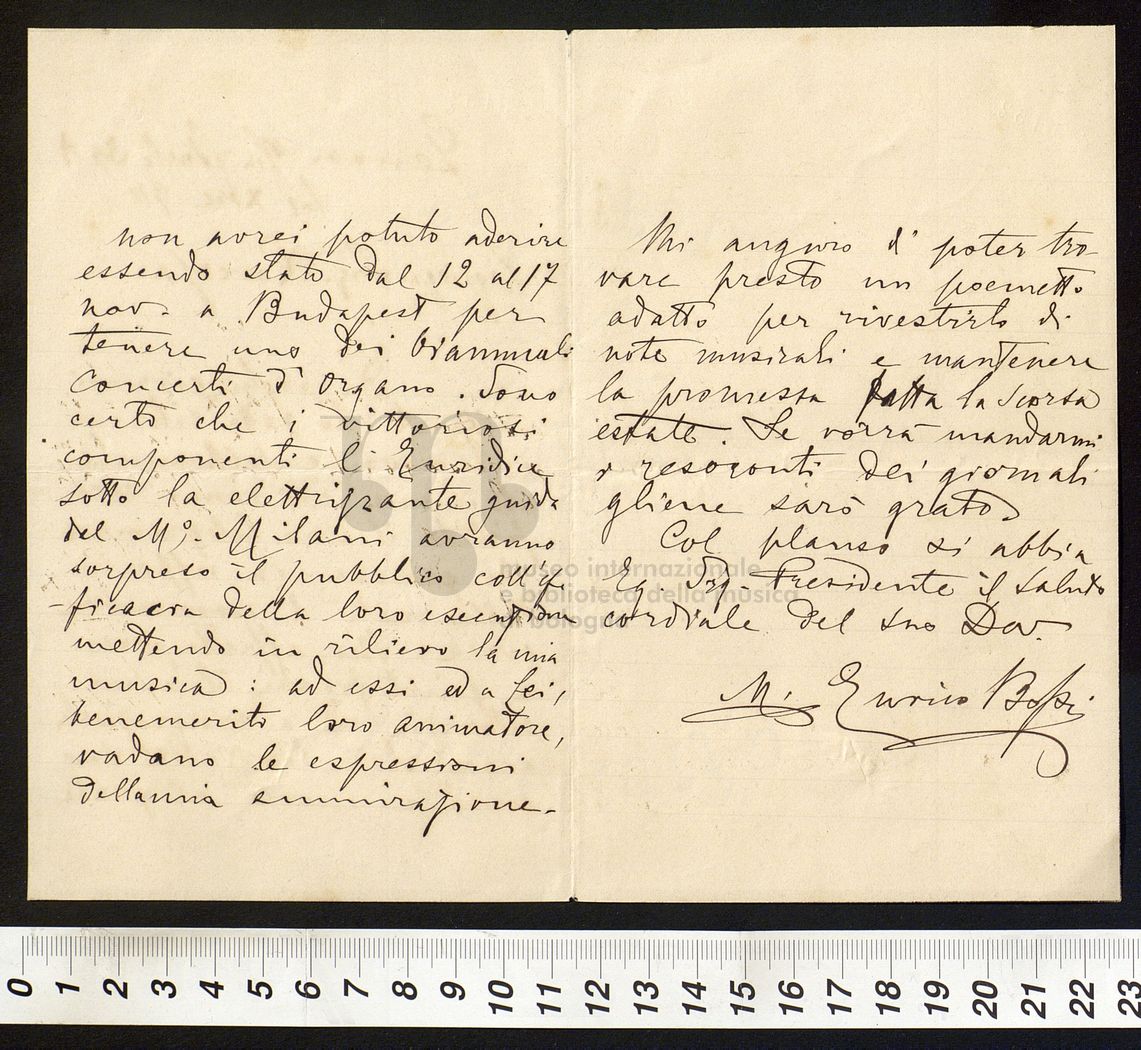 non avrei potuto aderire
essendo stato dal 12 al 17
nov. a Budapest per
tenere uno dei biannuali
concerti d'organo. Sono
certo che i vittoriosi
componenti l'Euridice
sotto la elettrizzante guida
del Mº. Milani avranno
sorpreso il pubblico coll'ef
-ficacia della loro esecuzione
mettendo in rilievo la mia
musica: ad essi ed a Lei,
benemerito loro animatore,
vadano le espressioni
della mia ammirazione.
Mi auguro di poter tro
vare presto un poemetto
adatto per rivestirlo di
note musicali e mantenere
la promessa fatta la scorsa
estate. Se vorrà mandarmi
i resoconti dei giornali
gliene sarò grato
Col plauso si abbia
Eg. Sig. Presidente il saluto
cordiale del suo Dev.
M. Enrico Bossi
museo internazionale
e biblioteca della musica
di bologna
0 1 2 3 4 5 6 7 8 9 10 11 12 13 14 15 16 17 18 19 20 21 22 23